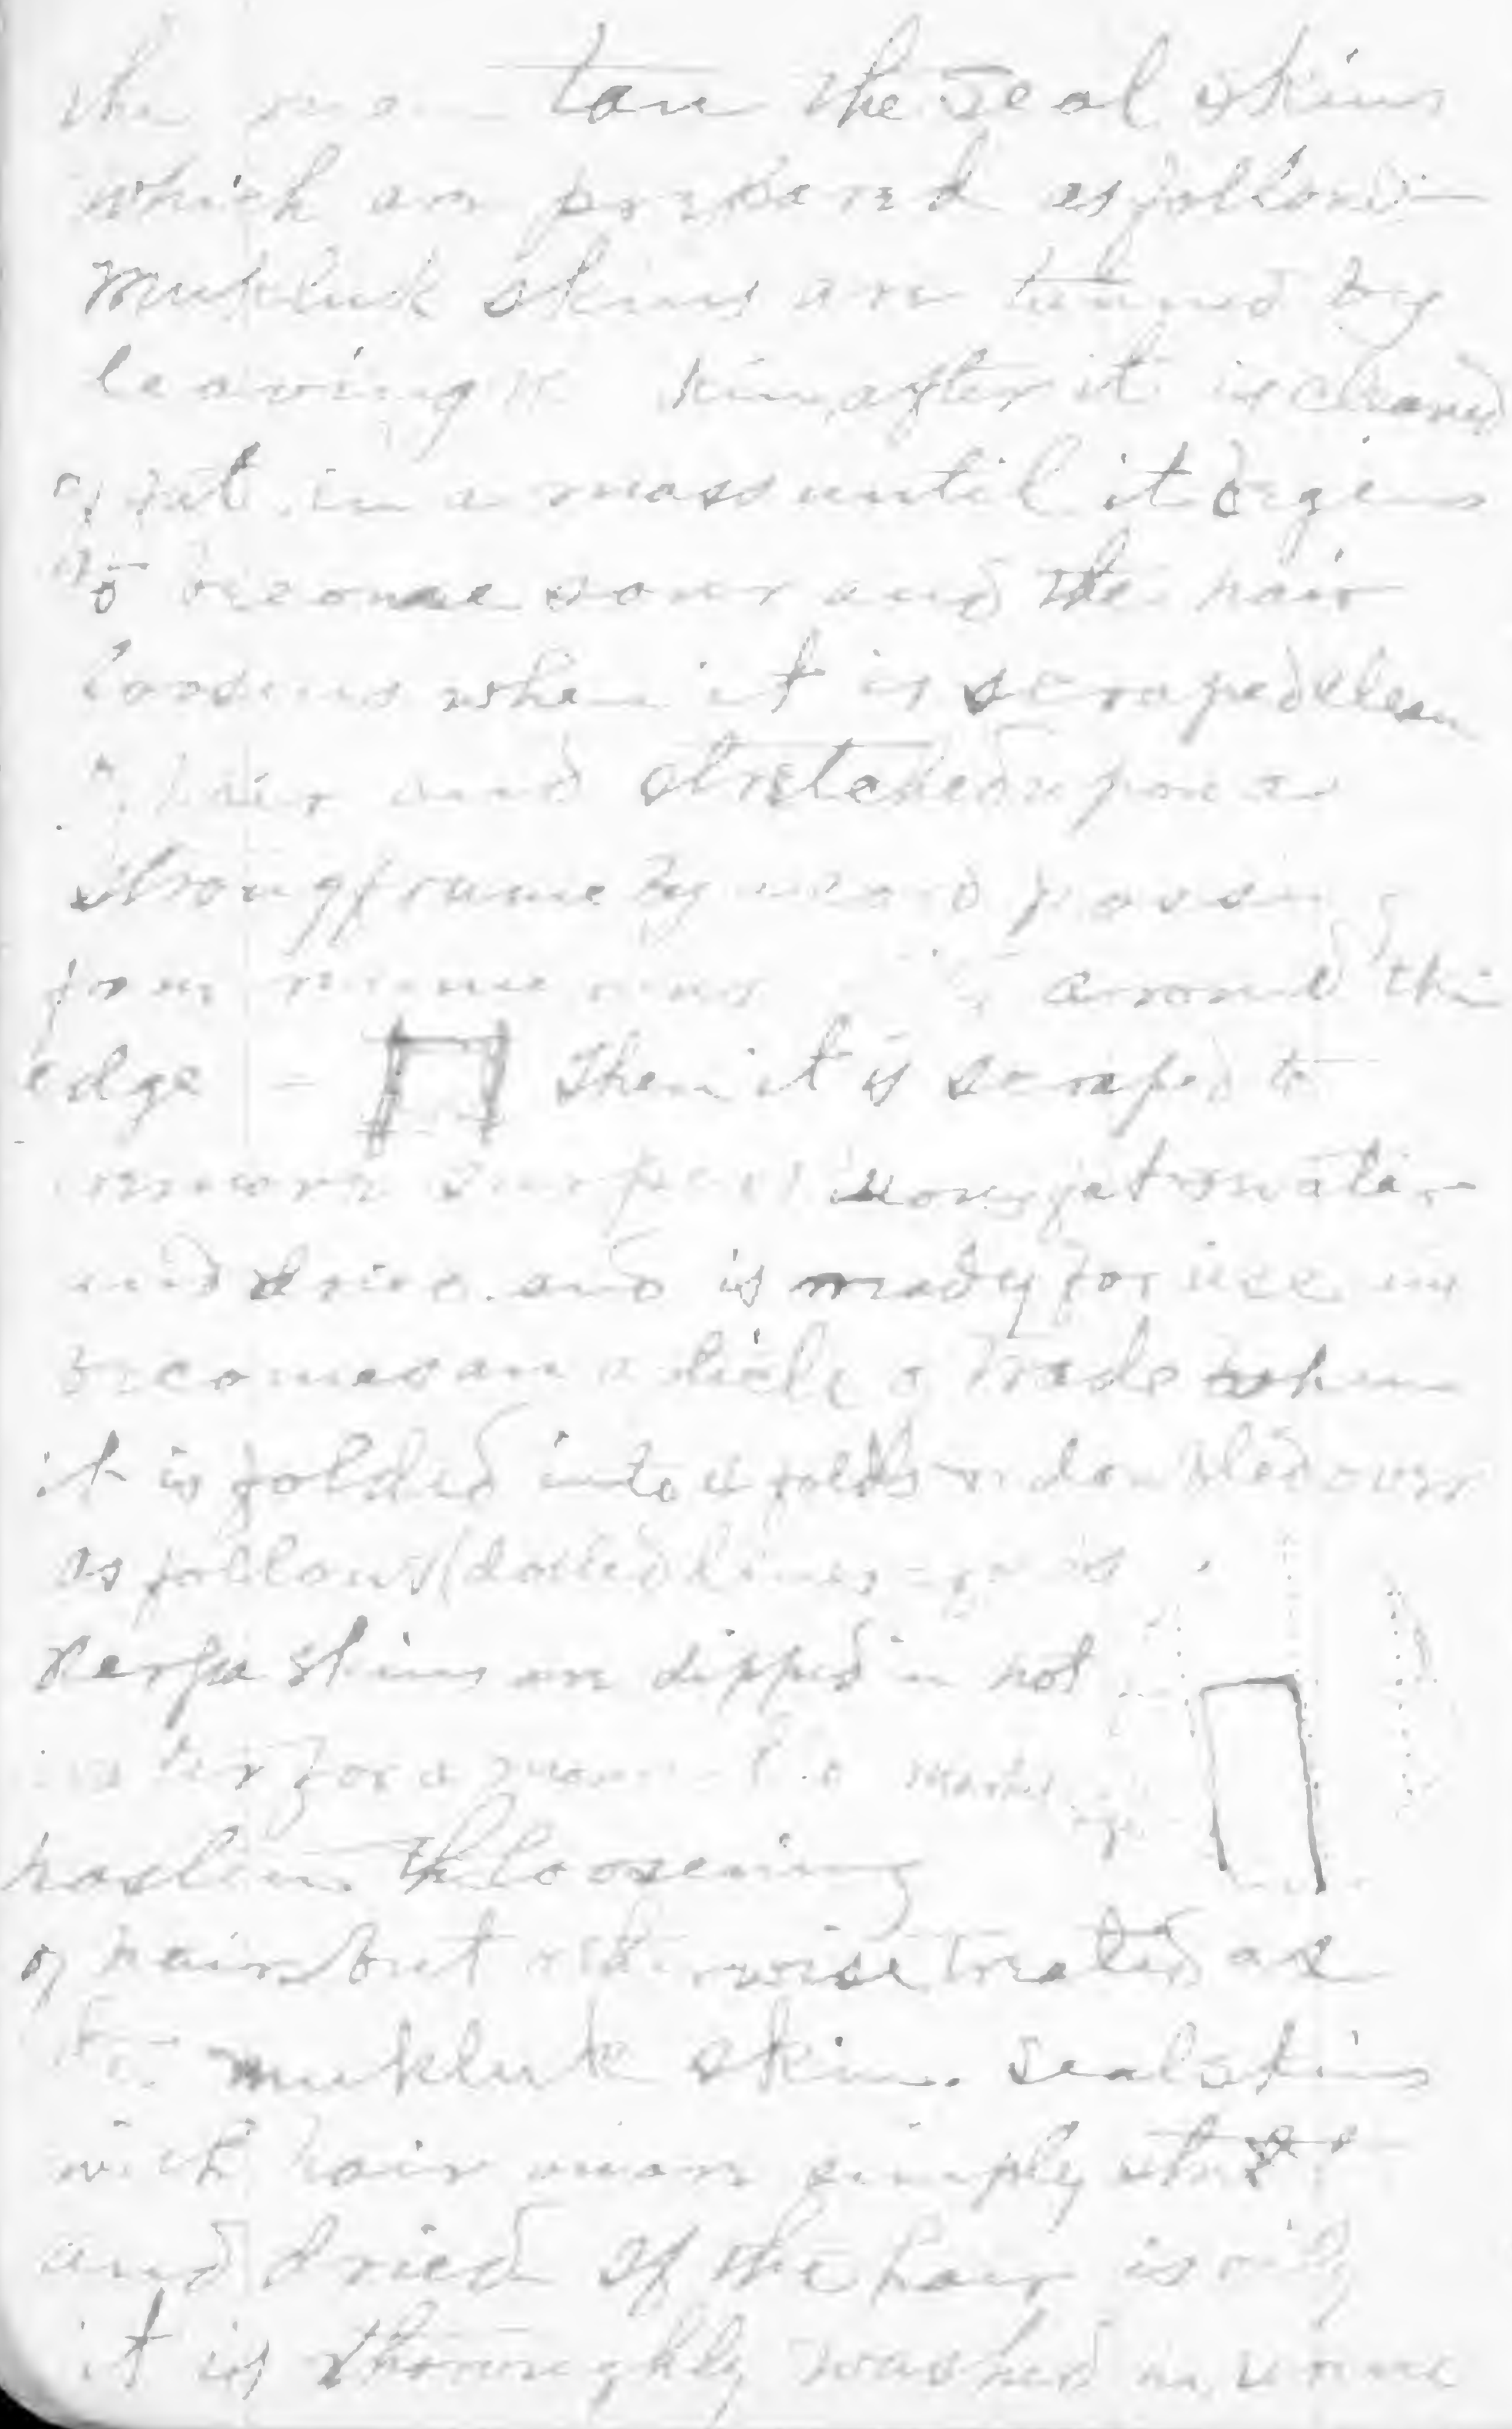 the men tan the seal skins
which are prepared as follows—
Mukluk skins are tanned by
leaving skin after it is cleaned
of fat in a mass until it begins
to become sour and the hair
loosens when it is scraped clean
of hair and stretched upon a
strong frame by cord passing
from around the
edge — Then it is scraped to
remove surplus fat or water
and dried and is ready for use or
becomes an article of trade when
it is folded into folds & doubled over
as follows (dotted lines
skins are dipped in hot
water for a moment to
hasten the loosening
of hair but otherwise treated as
the mukluk skin. Sealskins
with hair on are simply
and dried If the hair is oily
it is thoroughly washed in urine